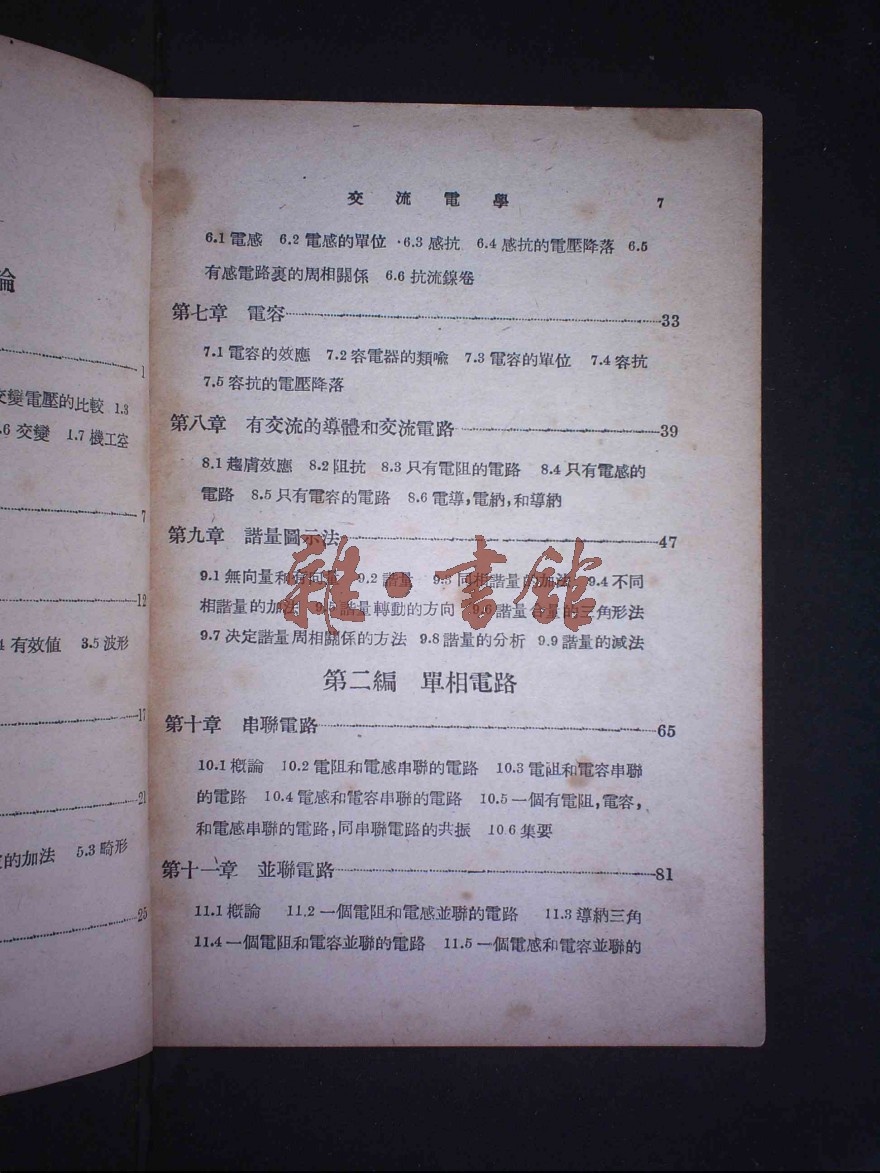 論
1
交變電壓的比較 1.3
.6 交變 1.7 機工室
7
12
有效值 3.5 波形
17
21
的加法 5.3 畸形
25
交流電學 7
6.1 電感 6.2 電感的單位 6.3 感抗 6.4 感抗的電壓降落 6.5
有感電路裏的周相關係 6.6 抗流線卷
第七章 電容 33
7.1 電容的效應 7.2 容電器的類喩 7.3 電容的單位 7.4 容抗
7.5 容抗的電壓降落
第八章 有交流的導體和交流電路 39
8.1 趨膚效應 8.2 阻抗 8.3 只有電阻的電路 8.4 只有電感的
電路 8.5 只有電容的電路 8.6 電導,電納,和導納
第九章 諧量圖示法 47
9.1 無向量和有向量 9.2 諧量 9.3 同相諧量的加法 9.4 不同
相諧量的加法 9.5 諧量轉動的方向 9.6 諧量合量的三角形法
9.7 決定諧量周相關係的方法 9.8 諧量的分析 9.9 諧量的減法
雜·書館
第二編 單相電路
第十章 串聯電路 65
10.1 槪論 10.2 電阻和電感串聯的電路 10.3 電阻和電容串聯
的電路 10.4 電感和電容串聯的電路 10.5 一個有電阻,電容,
和電感串聯的電路,同串聯電路的共振 10.6 集要
第十一章 並聯電路 81
11.1 槪論 11.2 一個電阻和電感並聯的電路 11.3 導納三角
11.4 一個電阻和電容並聯的電路 11.5 一個電感和電容並聯的